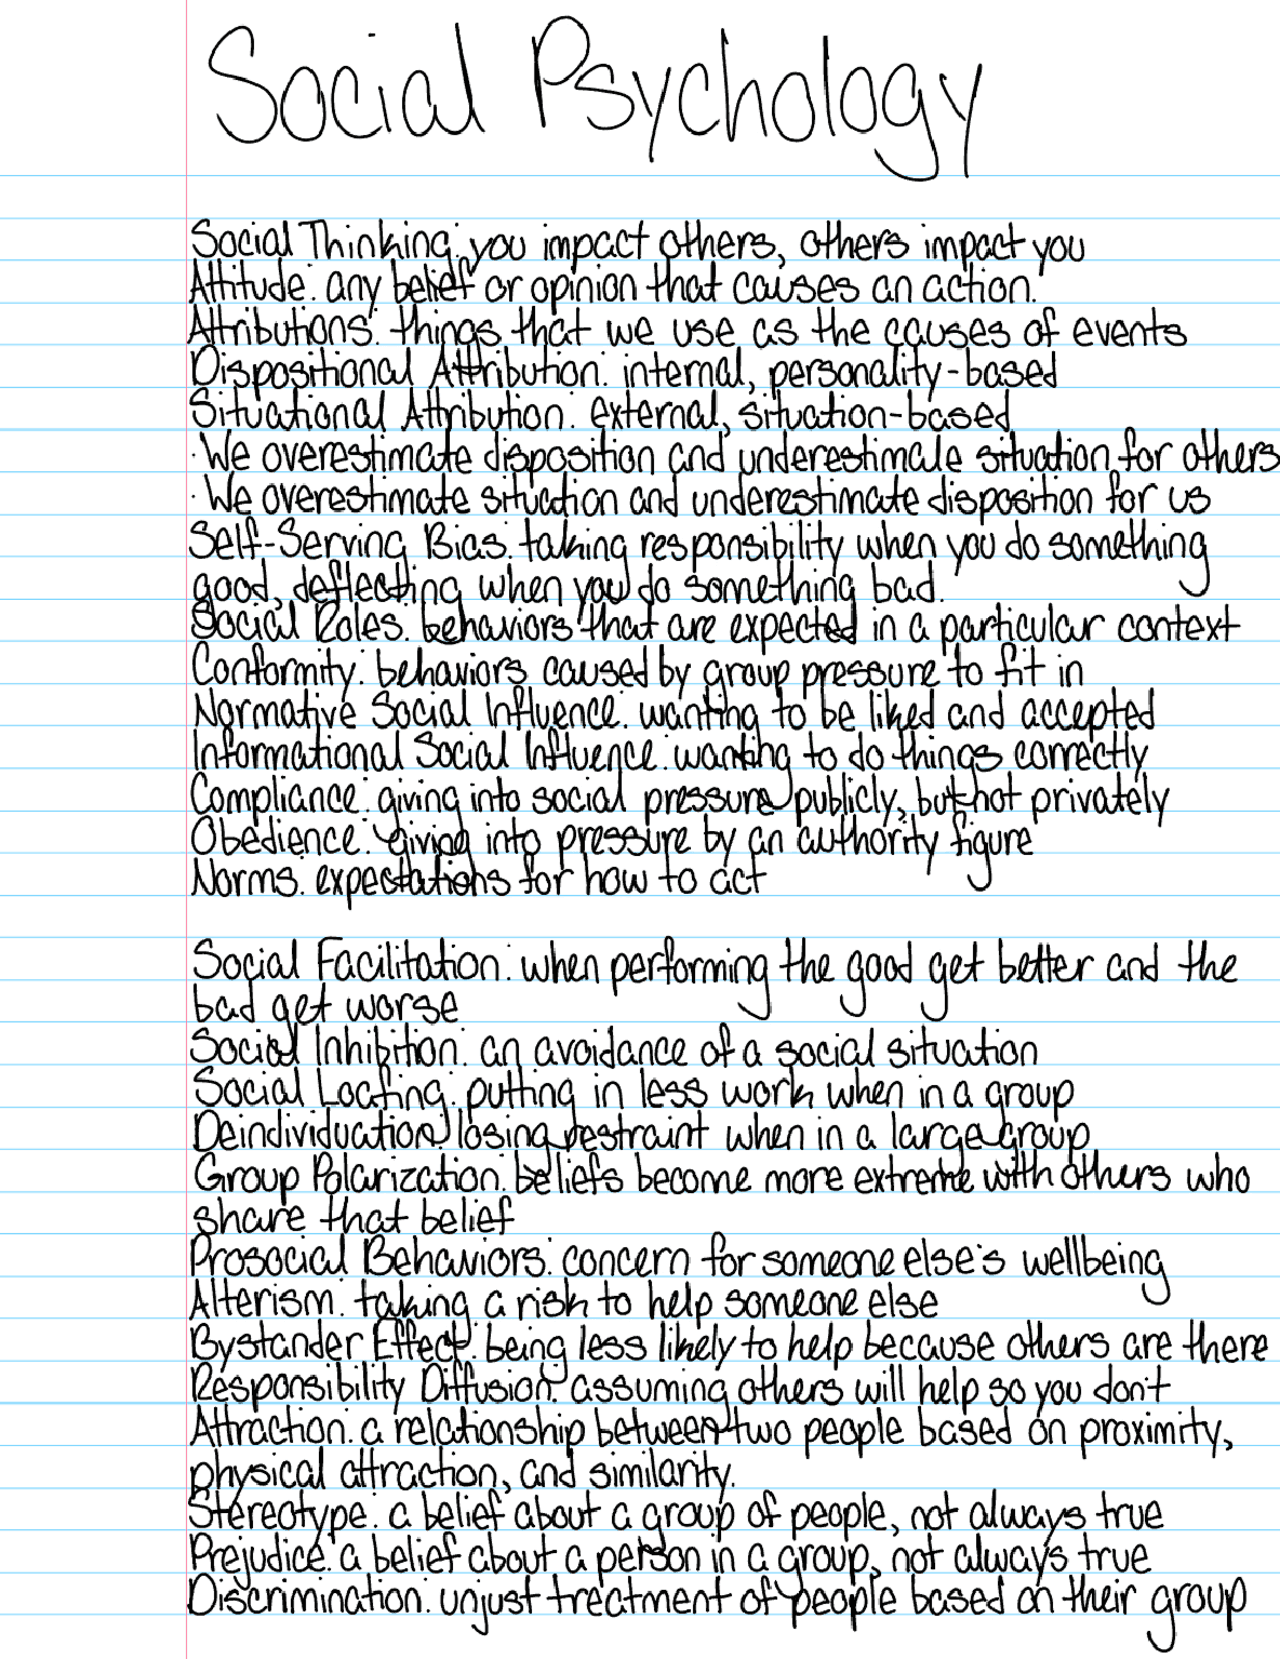 Social Psychology
Social Thinking: you impact others, others impact you
Attitude: any belief or opinion that causes an action.
Attributions: things that we use as the causes of events
Dispositional Attribution: internal, personality-based
Situational Attribution: external, situation-based
· We overestimate disposition and underestimate situation for others
· We overestimate situation and underestimate disposition for us
Self-Serving Bias: taking responsibility when you do something
good, deflecting when you do something bad.
Social Roles: behaviors that are expected in a particular context
Conformity: behaviors caused by group pressure to fit in
Normative Social Influence: wanting to be liked and accepted
Informational Social Influence: wanting to do things correctly
Compliance: giving into social pressure publicly, but not privately
Obedience: giving into pressure by an authority figure
Norms: expectations for how to act
Social Facilitation: when performing the good get better and the
bad get worse
Social Inhibition: an avoidance of a social situation
Social Loafing: putting in less work when in a group
Deindividuation: losing restraint when in a large group
Group Polarization: beliefs become more extreme with others who
share that belief
Prosocial Behaviors: concern for someone else's wellbeing
Alterism: taking a risk to help someone else
Bystander Effect: being less likely to help because others are there
Responsibility Diffusion: assuming others will help so you don't
Attraction: a relationship between two people based on proximity,
physical attraction, and similarity.
Stereotype: a belief about a group of people, not always true
Prejudice: a belief about a person in a group, not always true
Discrimination: unjust treatment of people based on their group